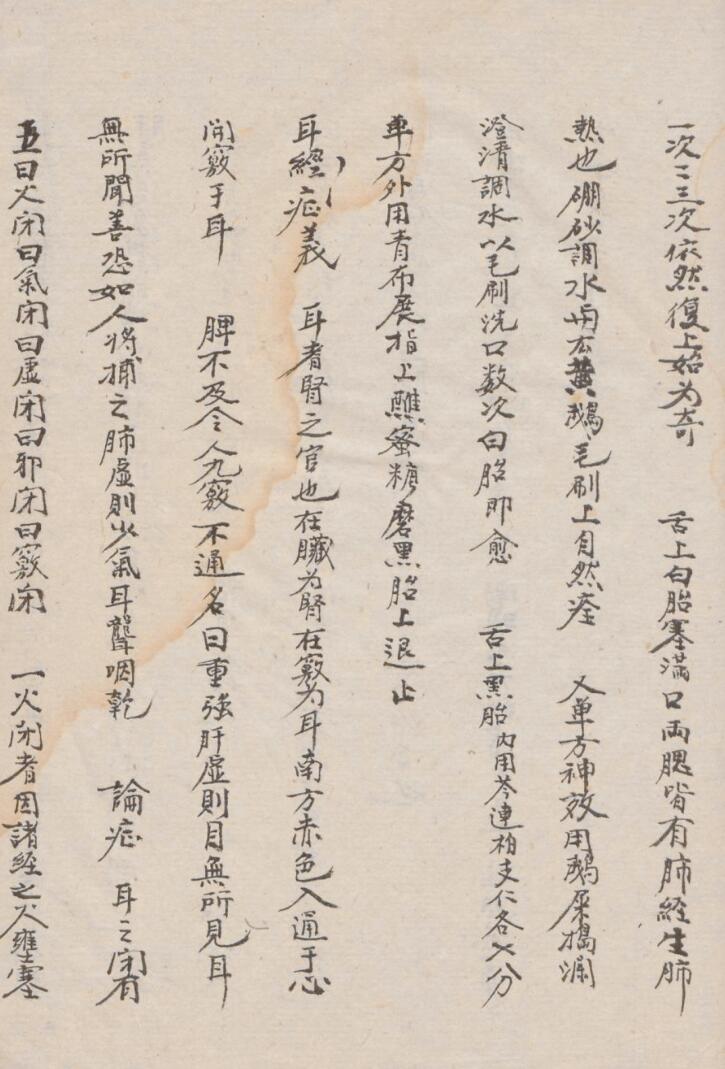 一次二三次依然復上始为奇　舌上白胎塞滿口両腮皆有肺經生肺
熱也硼砂調水兩玄黃鵝毛刷上自然痊　又单方神效用鵝屎搗瀾
澄清調水以毛刷洗口数次白胎即愈　舌上黑胎内用芩連柏支仁各七分
单方外用青布展指上醮蜜糖磨黑胎上退止
耳經症義　耳者腎之官也在臟为腎在竅为耳南方赤色入通于心
開竅于耳　脾不及令人九竅不通名曰重强肝虚則目無所見耳
無所聞善恐如人将捕之肺虚則少氣耳聾咽乾　論症　耳之闭有
五曰火闭曰氣闭曰虚闭曰邪闭曰竅闭　一火闭者因諸經之火壅塞